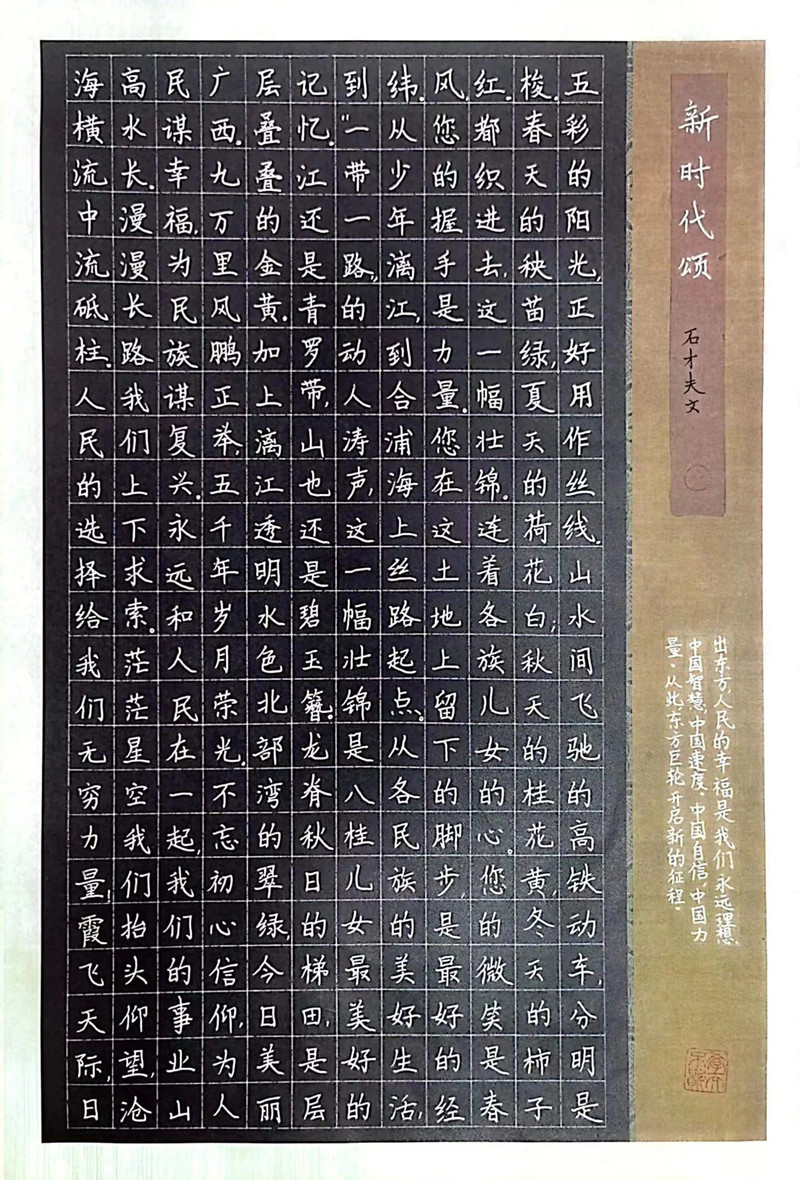 新时代颂
石才夫文
五彩的阳光,正好用作丝线。山水间飞驰的高铁动车,分明是
梭。春天的秧苗绿,夏天的荷花白;秋天的桂花黄,冬天的柿子
红。都织进去,这一幅壮锦。连着各族儿女的心。您的微笑是春
风,您的握手是力量。您在这土地上留下的脚步,是最好的经
纬。从少年漓江,到合浦海上丝路起点。从各民族的美好生活,
到“一带一路”的动人涛声,这一幅壮锦是八桂儿女最美好的
记忆。江还是青罗带,山也还是碧玉簪。龙脊秋日的梯田,是层
层叠叠的金黄。加上漓江透明水色北部湾的翠绿,今日美丽
广西。九万里风鹏正举,五千年岁月荣光。不忘初心信仰,为人
民谋幸福,为民族谋复兴。永远和人民在一起,我们的事业山
高水长。漫漫长路我们上下求索。茫茫星空我们抬头仰望,沧
海横流中流砥柱。人民的选择给我们无穷力量!霞飞天际,日
出东方,人民的幸福是我们永远理想,
中国智慧、中国速度、中国自信、中国力
量。从此东方巨轮开启新的征程。